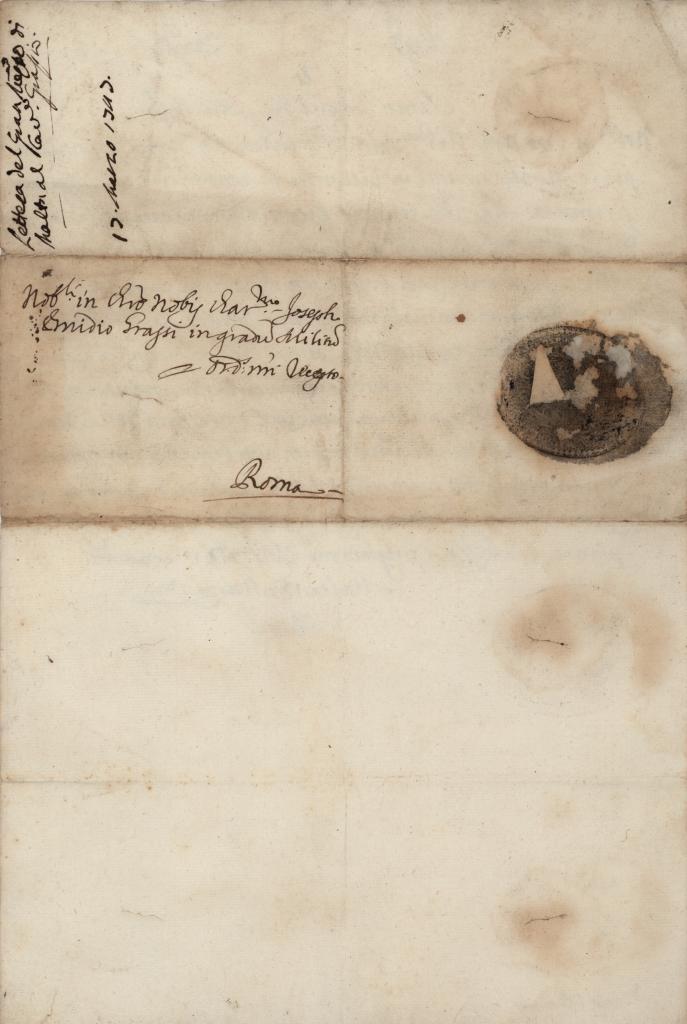 Lettera del Gran Mẽro di
Malta al Kav.r Grassi.
17. Marzo 1747.
Nob.li in Chr̃o Nobis Char.mo Joseph
Emidio Grassi in gradu Militũ
Ord.is nri̅
Roma